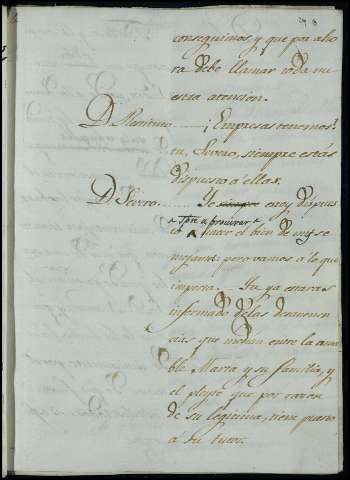 conseguimos, y que por aho
ra debe llamar toda nu
estra atencion.
D. Mariano. ¡Empresas tenemos!
tu, Severo, siempre estás
dispuesto á ellas.
D. Severo. Yo siempre estoy dispues
to á procurar
hacer el bien de mis se
mejantes: pero vamos á lo que
importa. Tu ya estaras
informado de las desavenen
cias que median entre la ama
ble Marta y su familia, y
el pleyto que por razon
de su legitima, tiene puesto
á su tutor.